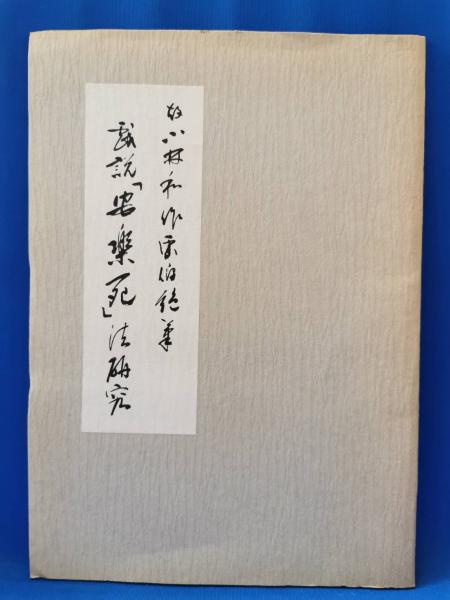 故小林和作画伯絶筆
戯説「安楽死」法研究